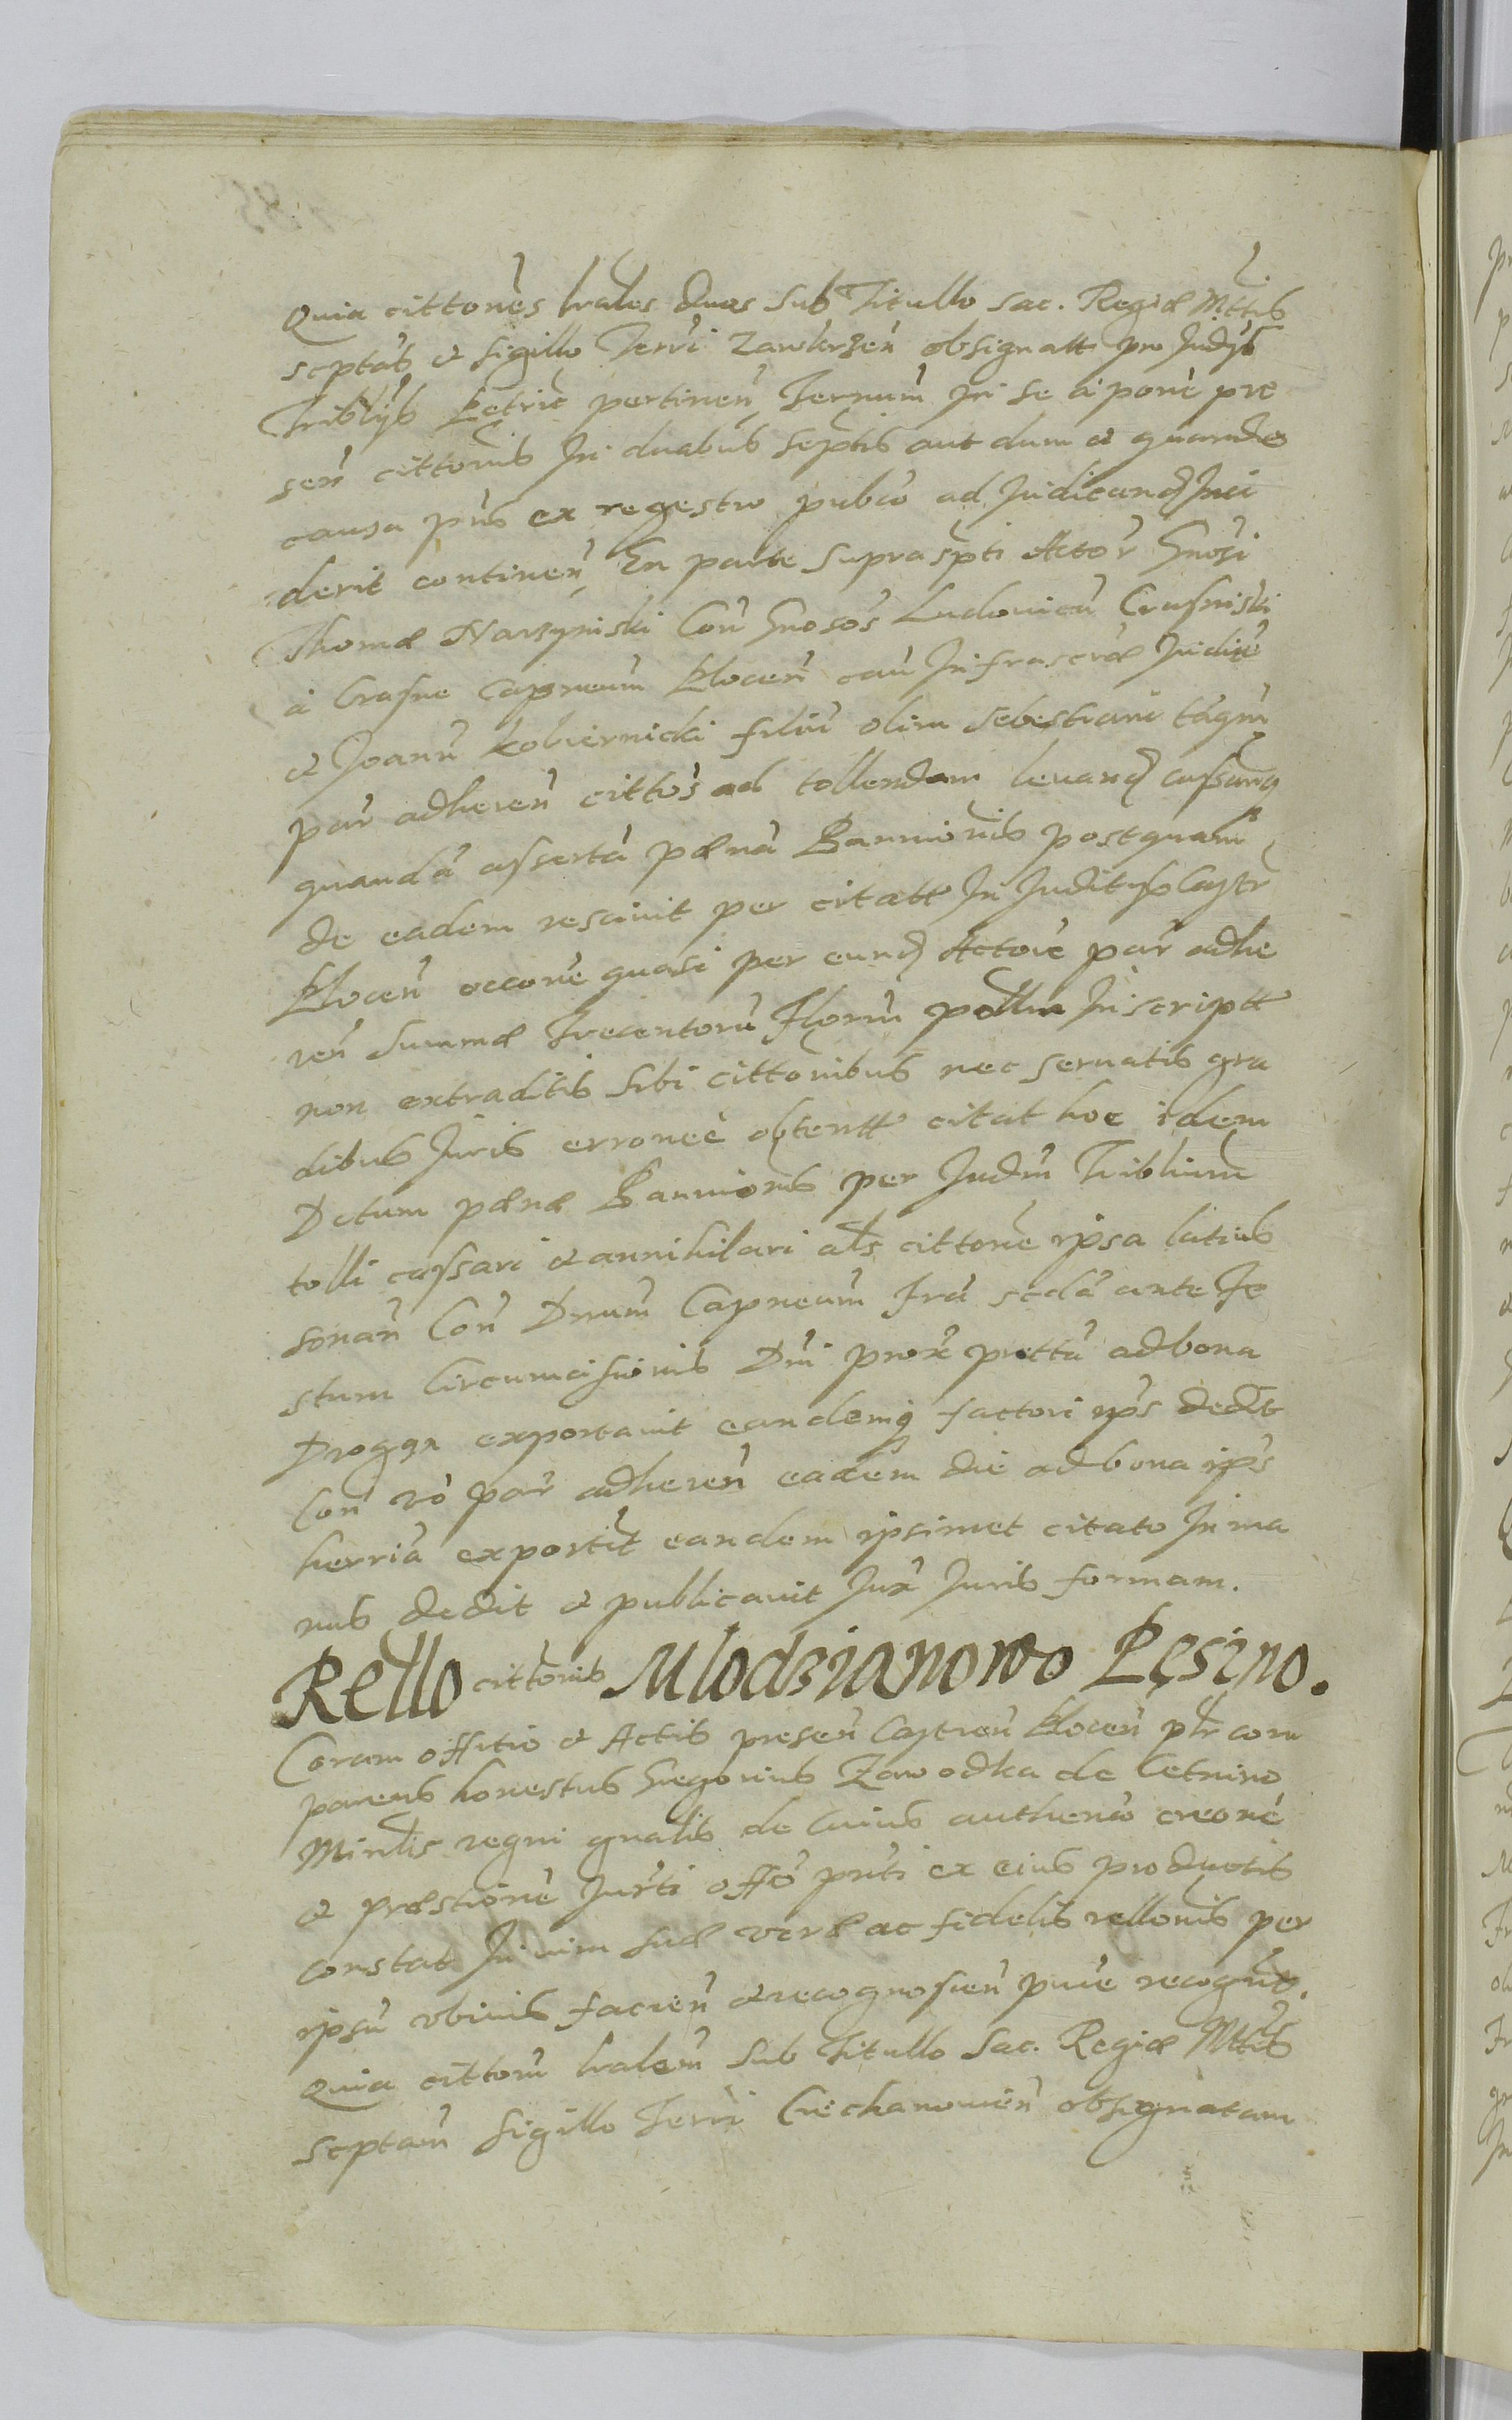 Quia cittones lrales duas sub Titullo sac. Regiæ Mttis
scptas et sigillo Terri Zawkrzen obsignatt pro Judys
Triblyb Petric pertinen Ternum in se a pone pre
sen cittonis In duabus septis aut dum et quando
causa pns ex regestro pubco ad Judicand Inci
derit continen, Ex parte suprascpti Actor Gnosi
Thomæ Narzyniski Con Gnosos Ludouicu Crasniski
a Crasne Capneum Plocen cau Infrascræ Judice
et Joann Kobiernicki filiu olim Sebestiani tagm
par adheren cittos ad tollendam leuand cassanq
quanda assertâ pœnâ Bannionis postquam
de eadem resciuit per citatt In Juditiso Castr
Plocen occone quasi per eund Actore par adhe
ren Summæ Trecentoru Floru pollm Inscriptt
non extraditis sibi cittonibus nec seruatis gra
dibus Juris erroneè obtentt citat hoc idem
Dctum pœnæ Bannionis per Judm Triblium
tolli cassari et annihilari als cittone ipsa latius
sonan Con Dnum Capneum Fra scda ante Fe
stum Circumcisionis Dni prox prtta ad bona
Drogga exportauit eandemq factori ips dedit
Con vo par adheren eadem die ad bona ips
herria exportit eandem ipsimet citato In ma
nus dedit et publicauit Jux Juris formam.
Rello cittonis Mlodzianowo Pęsino.
Coram offitio et Actis presen Castren Plocen plr com
parens honestus Gregorius Zawodka de Cetnino
Minrlis regni gnalis de cuius authenco creone
et præstione Jurti offo pnti ex eius productis
constat In vim suæ veræ ac fidelis rellonis per
ipsu vbiuis facien et recognoscen pure recognt.
Quia cittom lralem sub Titullo Sac. Regiæ Mttis
scptam sigillo Terri Ciechanouien obsignatam